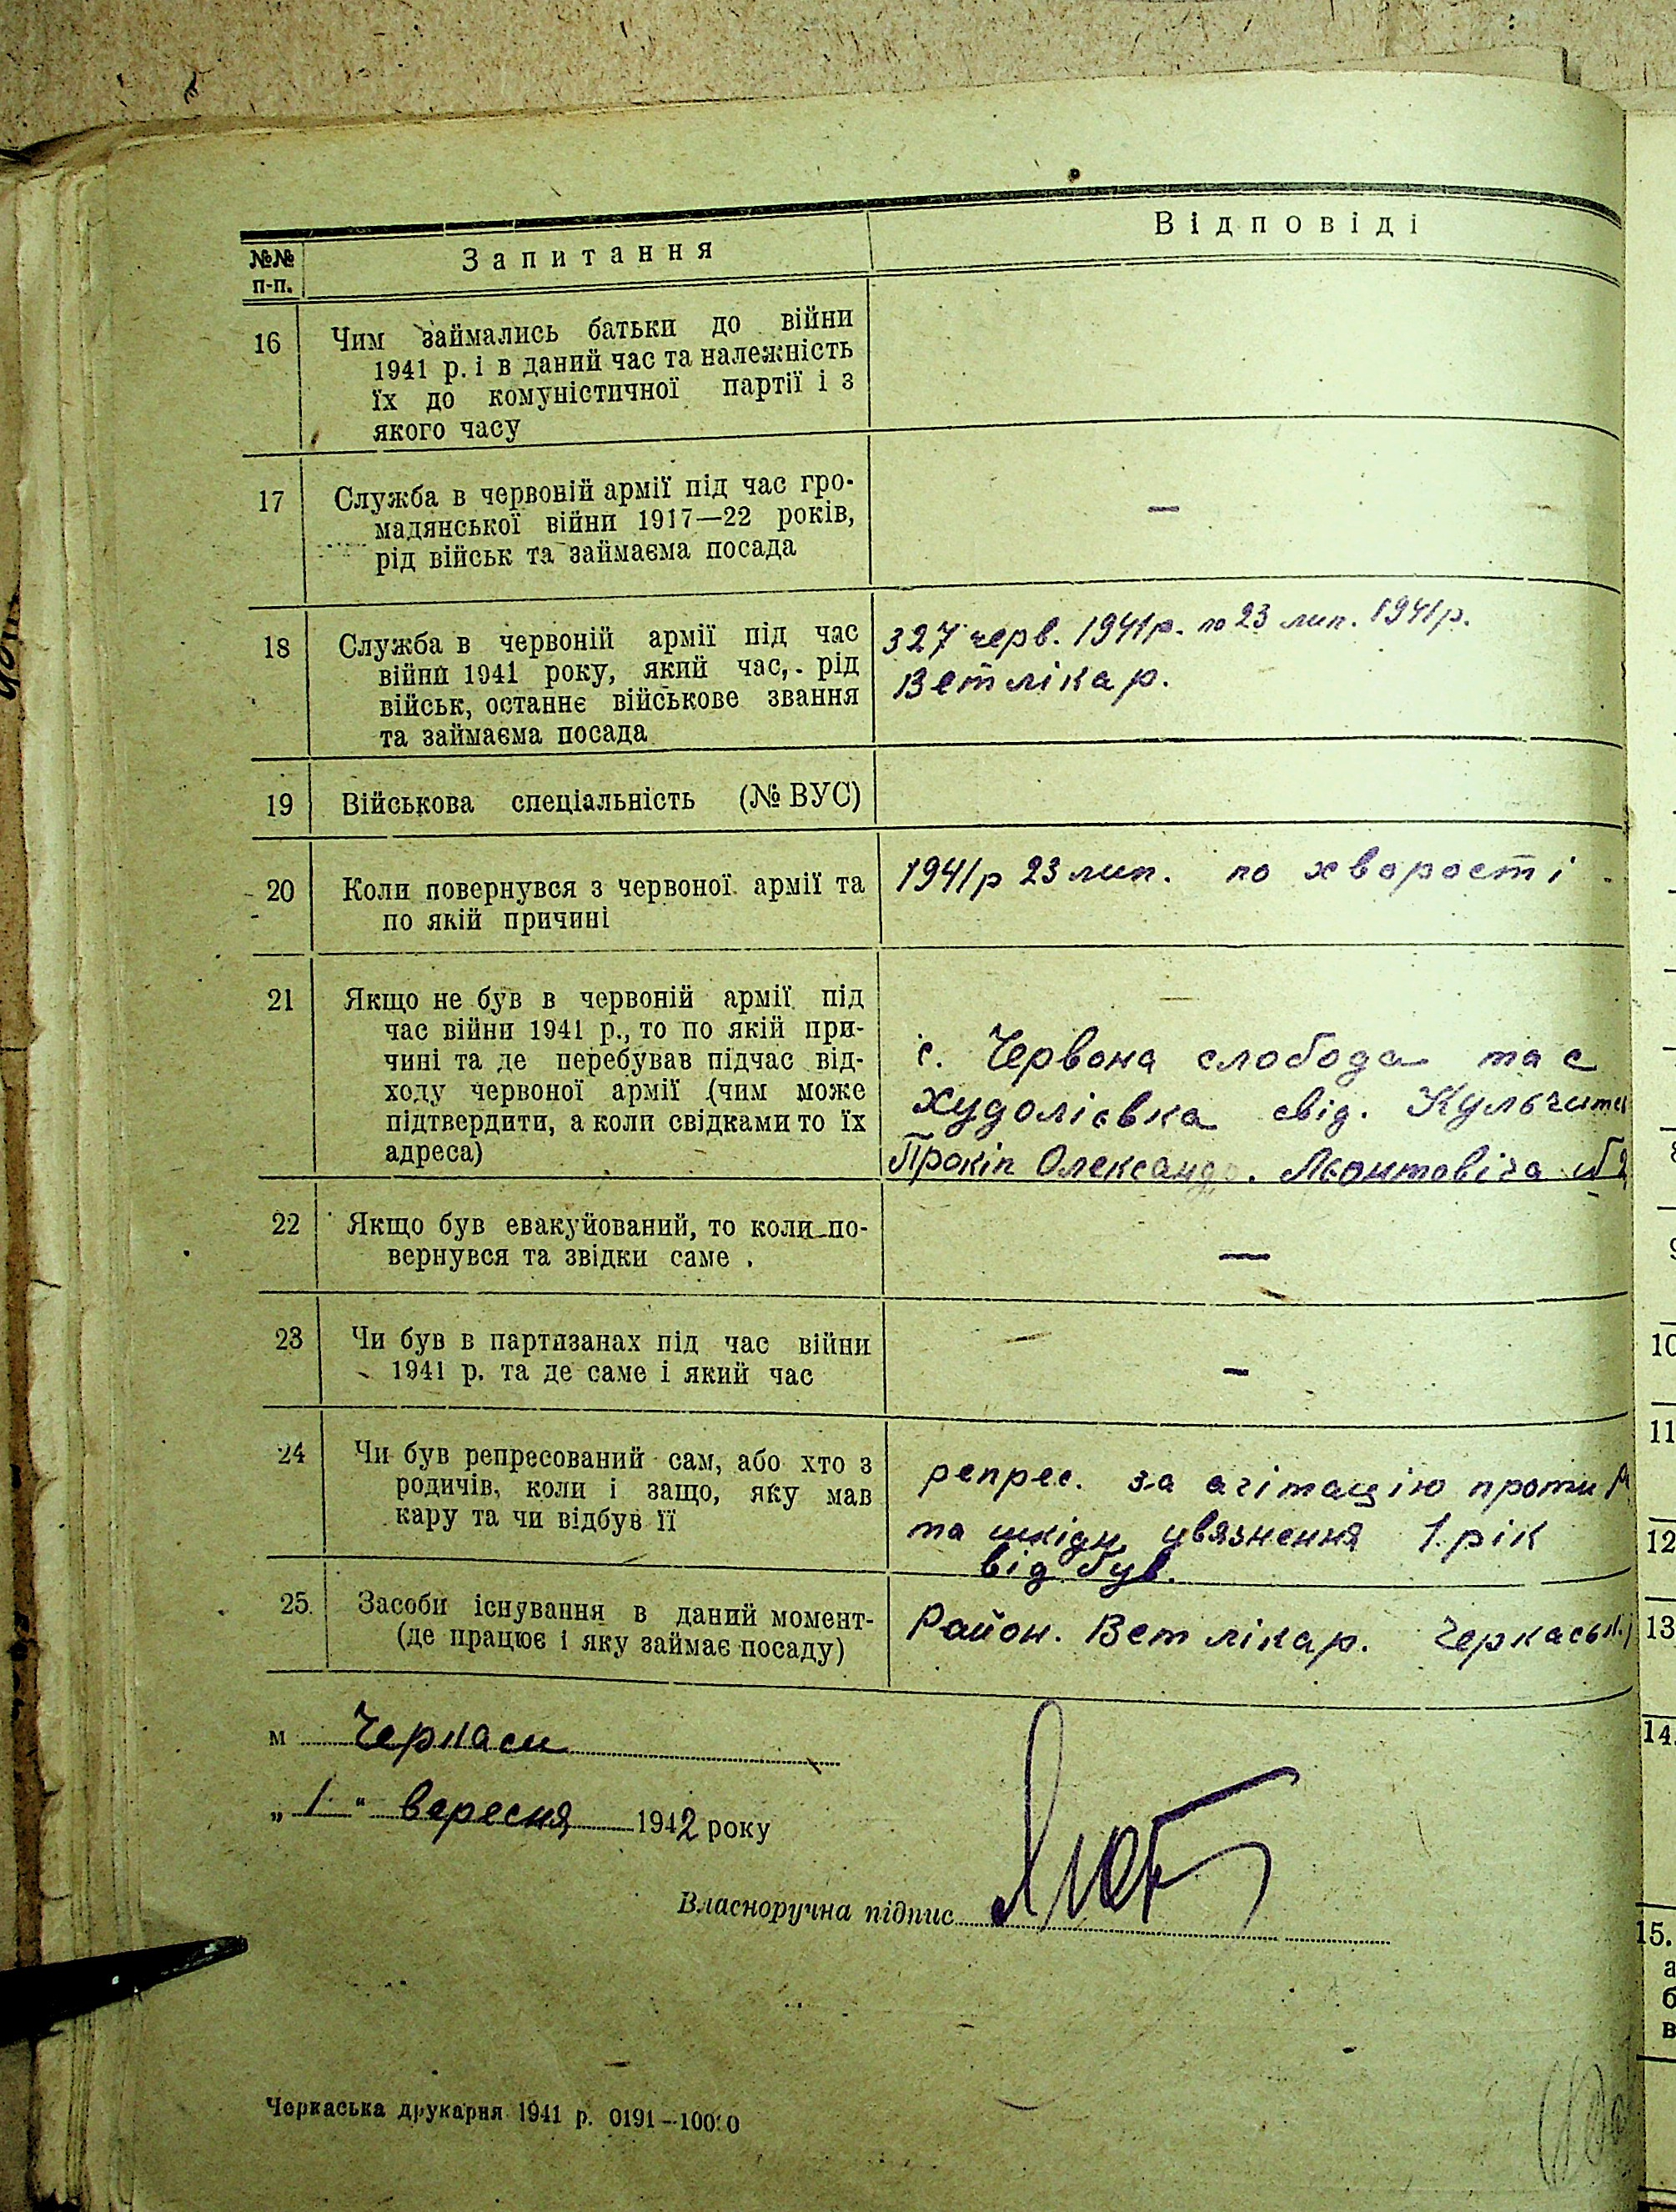 №№ п-п.
Запитання
Відповіді
16 Чим займались батьки до війни
1941 р. і в даний час та належність
їх до комуністичної партії і з
якого часу
17 Служба в червоній армії під час гро-
мадянської війни 1917—22 років,
рід військ та займаєма посада
—
18 Служба в червоній армії під час
війни 1941 року, який час, рід
військ, останнє військове звання
та займаєма посада
З 27 черв. 1941р. по 23 лип. 1941р.
Ветлікар.
19 Військова спеціальність (№ ВУС)
20 Коли повернувся з червоної армії та
по якій причині
1941р 23 лип. по хворості
21 Якщо не був в червоній армії під
час війни 1941 р., то по якій при-
чині та де перебував підчас від-
ходу червоної армії (чим може
підтвердити, а коли свідками то їх
адреса)
с. Червона слобода та с
Худоліївка свід.
Прокіп Олександр.
22 Якщо був евакуйований, то коли по-
вернувся та звідки саме .
—
23 Чи був в партизанах під час війни
1941 р. та де саме і який час
—
24 Чи був репресований сам, або хто з
родичів, коли і защо, яку мав
кару та чи відбув її
репрес. за агітацію проти
та шкідн. увязнення 1 рік
відбув.
25. Засоби існування в даний момент-
(де працює і яку займає посаду)
Район. Вет лікар. Черкаськ.
м Черкаси
„ 1 “ вересня 1942 року
Власноручна підпис
Черкаська друкарня 1941 р. 0191—10000
10
11
12
13
14.
15.
а
б
в